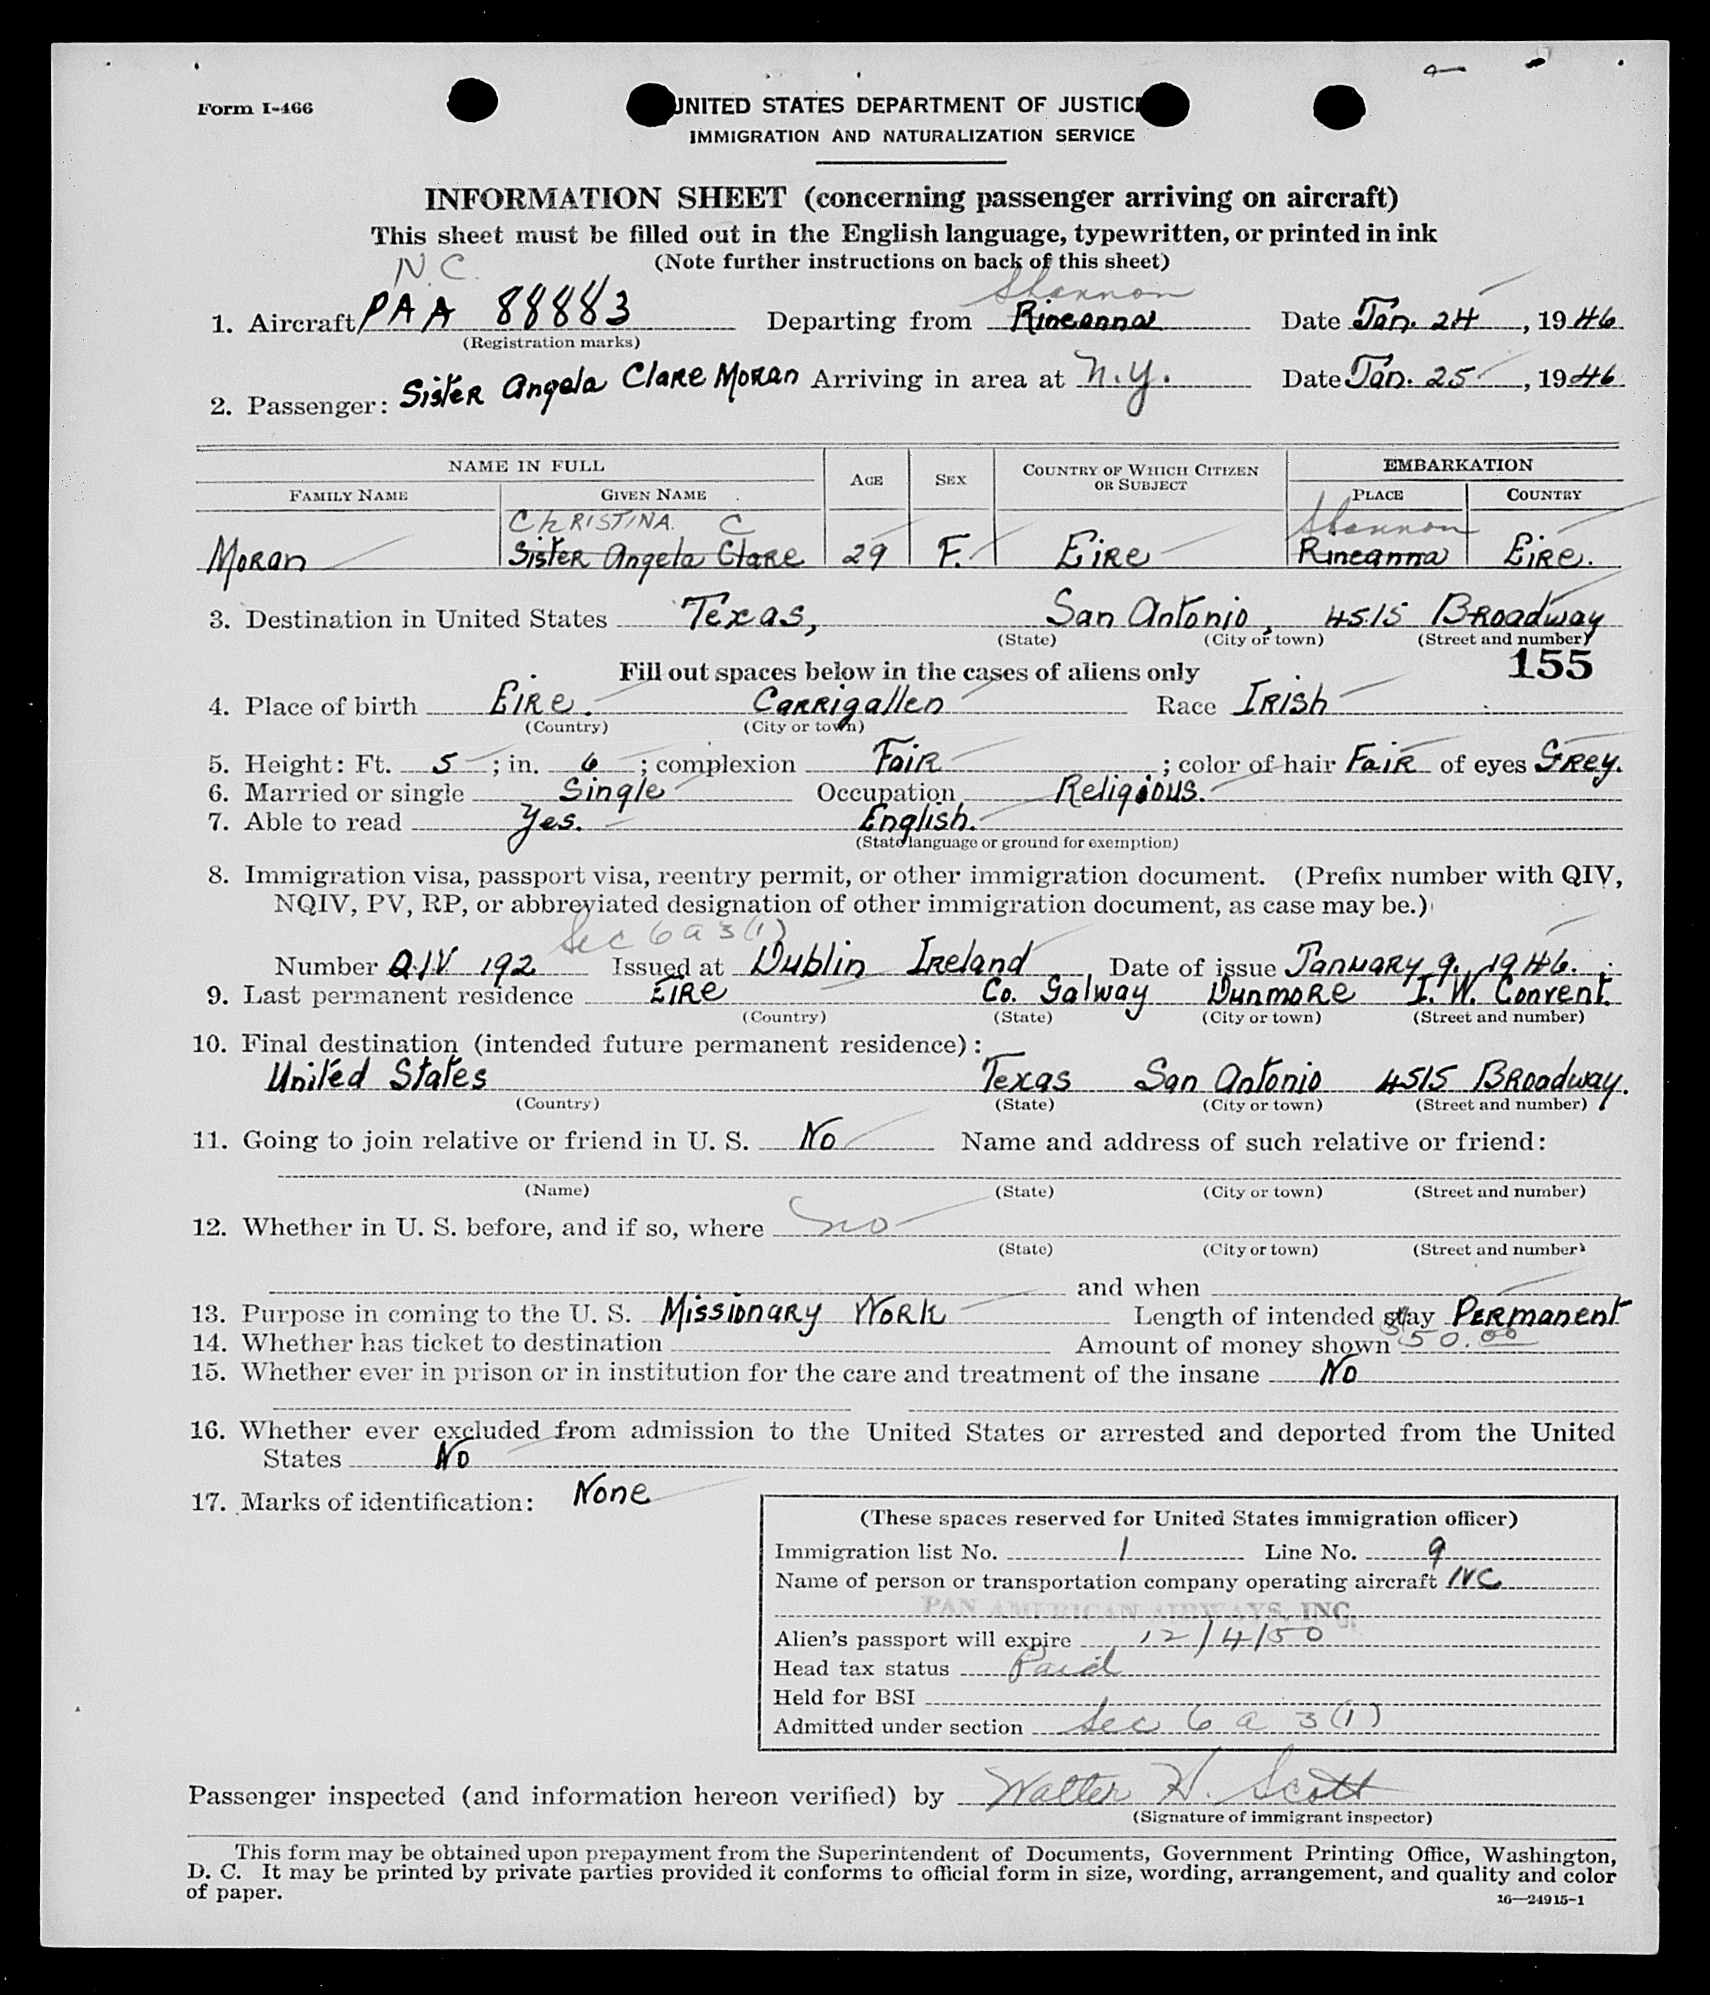 Form I-466
UNITED STATES DEPARTMENT OF JUSTICE
IMMIGRATION AND NATURALIZATION SERVICE
INFORMATION SHEET (concerning passenger arriving on aircraft)
This sheet must be filled out in the English language, typewritten, or printed in ink
(Note further instructions on back of this sheet)
N.C. Shannon
1. Aircraft PAA 88883 Departing from Rineanna Date Jan. 24, 1946
(Registration marks)
2. Passenger: Sister Angela Clare Moran Arriving in area at N.Y. Date Jan. 25, 1946
NAME IN FULL AGE SEX COUNTRY OF WHICH CITIZEN OR SUBJECT EMBARKATION
FAMILY NAME GIVEN NAME PLACE COUNTRY
CHRISTINA. C Shannon
Moran Sister Angela Clare 29 F. Eire Rineanna Eire.
3. Destination in United States Texas, San Antonio, 4515 Broadway
(State) (City or town) (Street and number)
Fill out spaces below in the cases of aliens only 155
4. Place of birth Eire. Carrigallen Race Irish
(Country) (City or town)
5. Height: Ft. 5; in. 6; complexion Fair; color of hair Fair of eyes Grey.
6. Married or single Single Occupation Religious.
7. Able to read Yes. English.
(State language or ground for exemption)
8. Immigration visa, passport visa, reentry permit, or other immigration document. (Prefix number with QIV,
NQIV, PV, RP, or abbreviated designation of other immigration document, as case may be.)
Sec 6 a 3(1)
Number QIV 192 Issued at Dublin Ireland Date of issue January 9, 1946.
9. Last permanent residence Eire Co. Galway Dunmore I. W. Convent.
(Country) (State) (City or town) (Street and number)
10. Final destination (intended future permanent residence):
United States Texas San Antonio 4515 Broadway.
(Country) (State) (City or town) (Street and number)
11. Going to join relative or friend in U. S. No Name and address of such relative or friend:
(Name) (State) (City or town) (Street and number)
12. Whether in U. S. before, and if so, where no
(State) (City or town) (Street and number)
and when
13. Purpose in coming to the U. S. Missionary Work Length of intended stay Permanent
14. Whether has ticket to destination Amount of money shown $50.00
15. Whether ever in prison or in institution for the care and treatment of the insane No
16. Whether ever excluded from admission to the United States or arrested and deported from the United
States No
17. Marks of identification: None
(These spaces reserved for United States immigration officer)
Immigration list No. 1 Line No. 9
Name of person or transportation company operating aircraft NC
PAN AMERICAN AIRWAYS, INC.
Alien's passport will expire 12/4/50
Head tax status Paid
Held for BSI
Admitted under section Sec 6 a 3(1)
Passenger inspected (and information hereon verified) by Walter H. Scott
(Signature of immigrant inspector)
This form may be obtained upon prepayment from the Superintendent of Documents, Government Printing Office, Washington,
D. C. It may be printed by private parties provided it conforms to official form in size, wording, arrangement, and quality and color
of paper.
16—24915-1